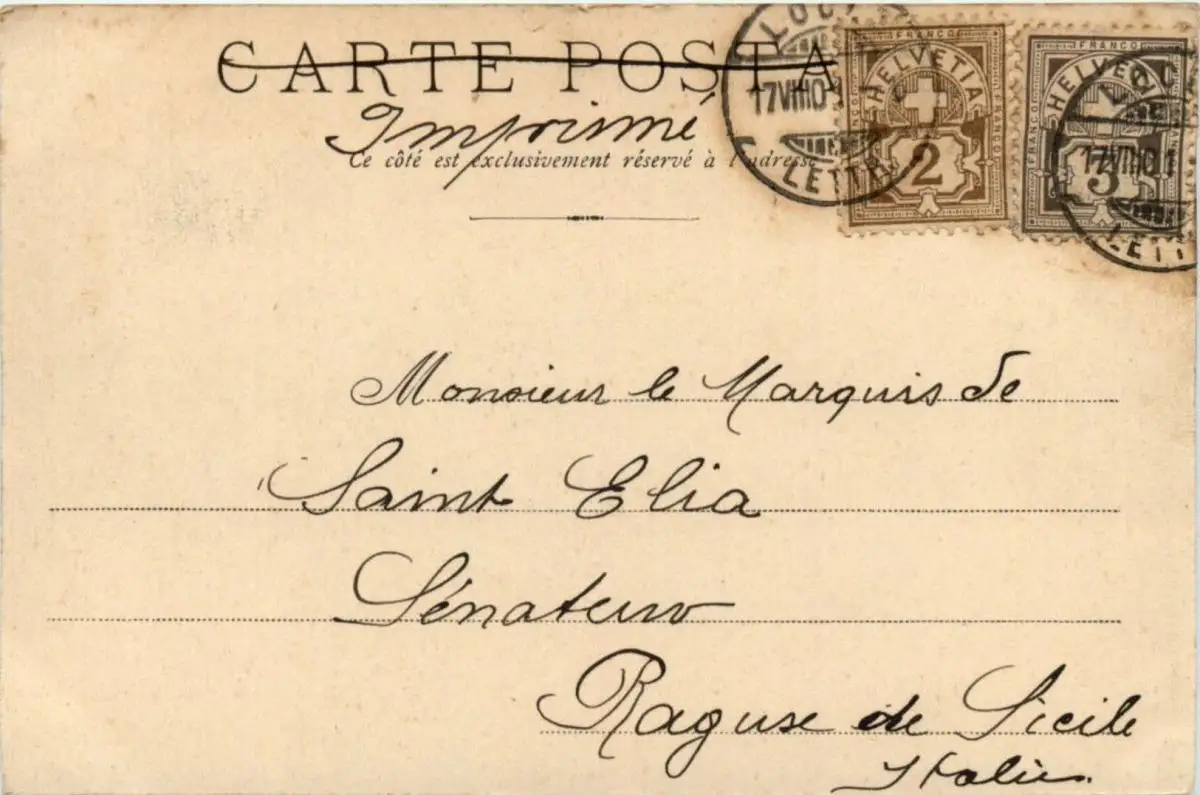 CARTE POSTA
Imprimé
Ce côté est exclusivement réservé à l'adresse
17 VIII 01
LETTR
FRANCO
HELVETIA
2
FRANCO
HELVETIA
17 VIII 01
LETT
Monsieur le Marquis de
Saint Elia
Sénateur
Raguse de Sicile
Italie